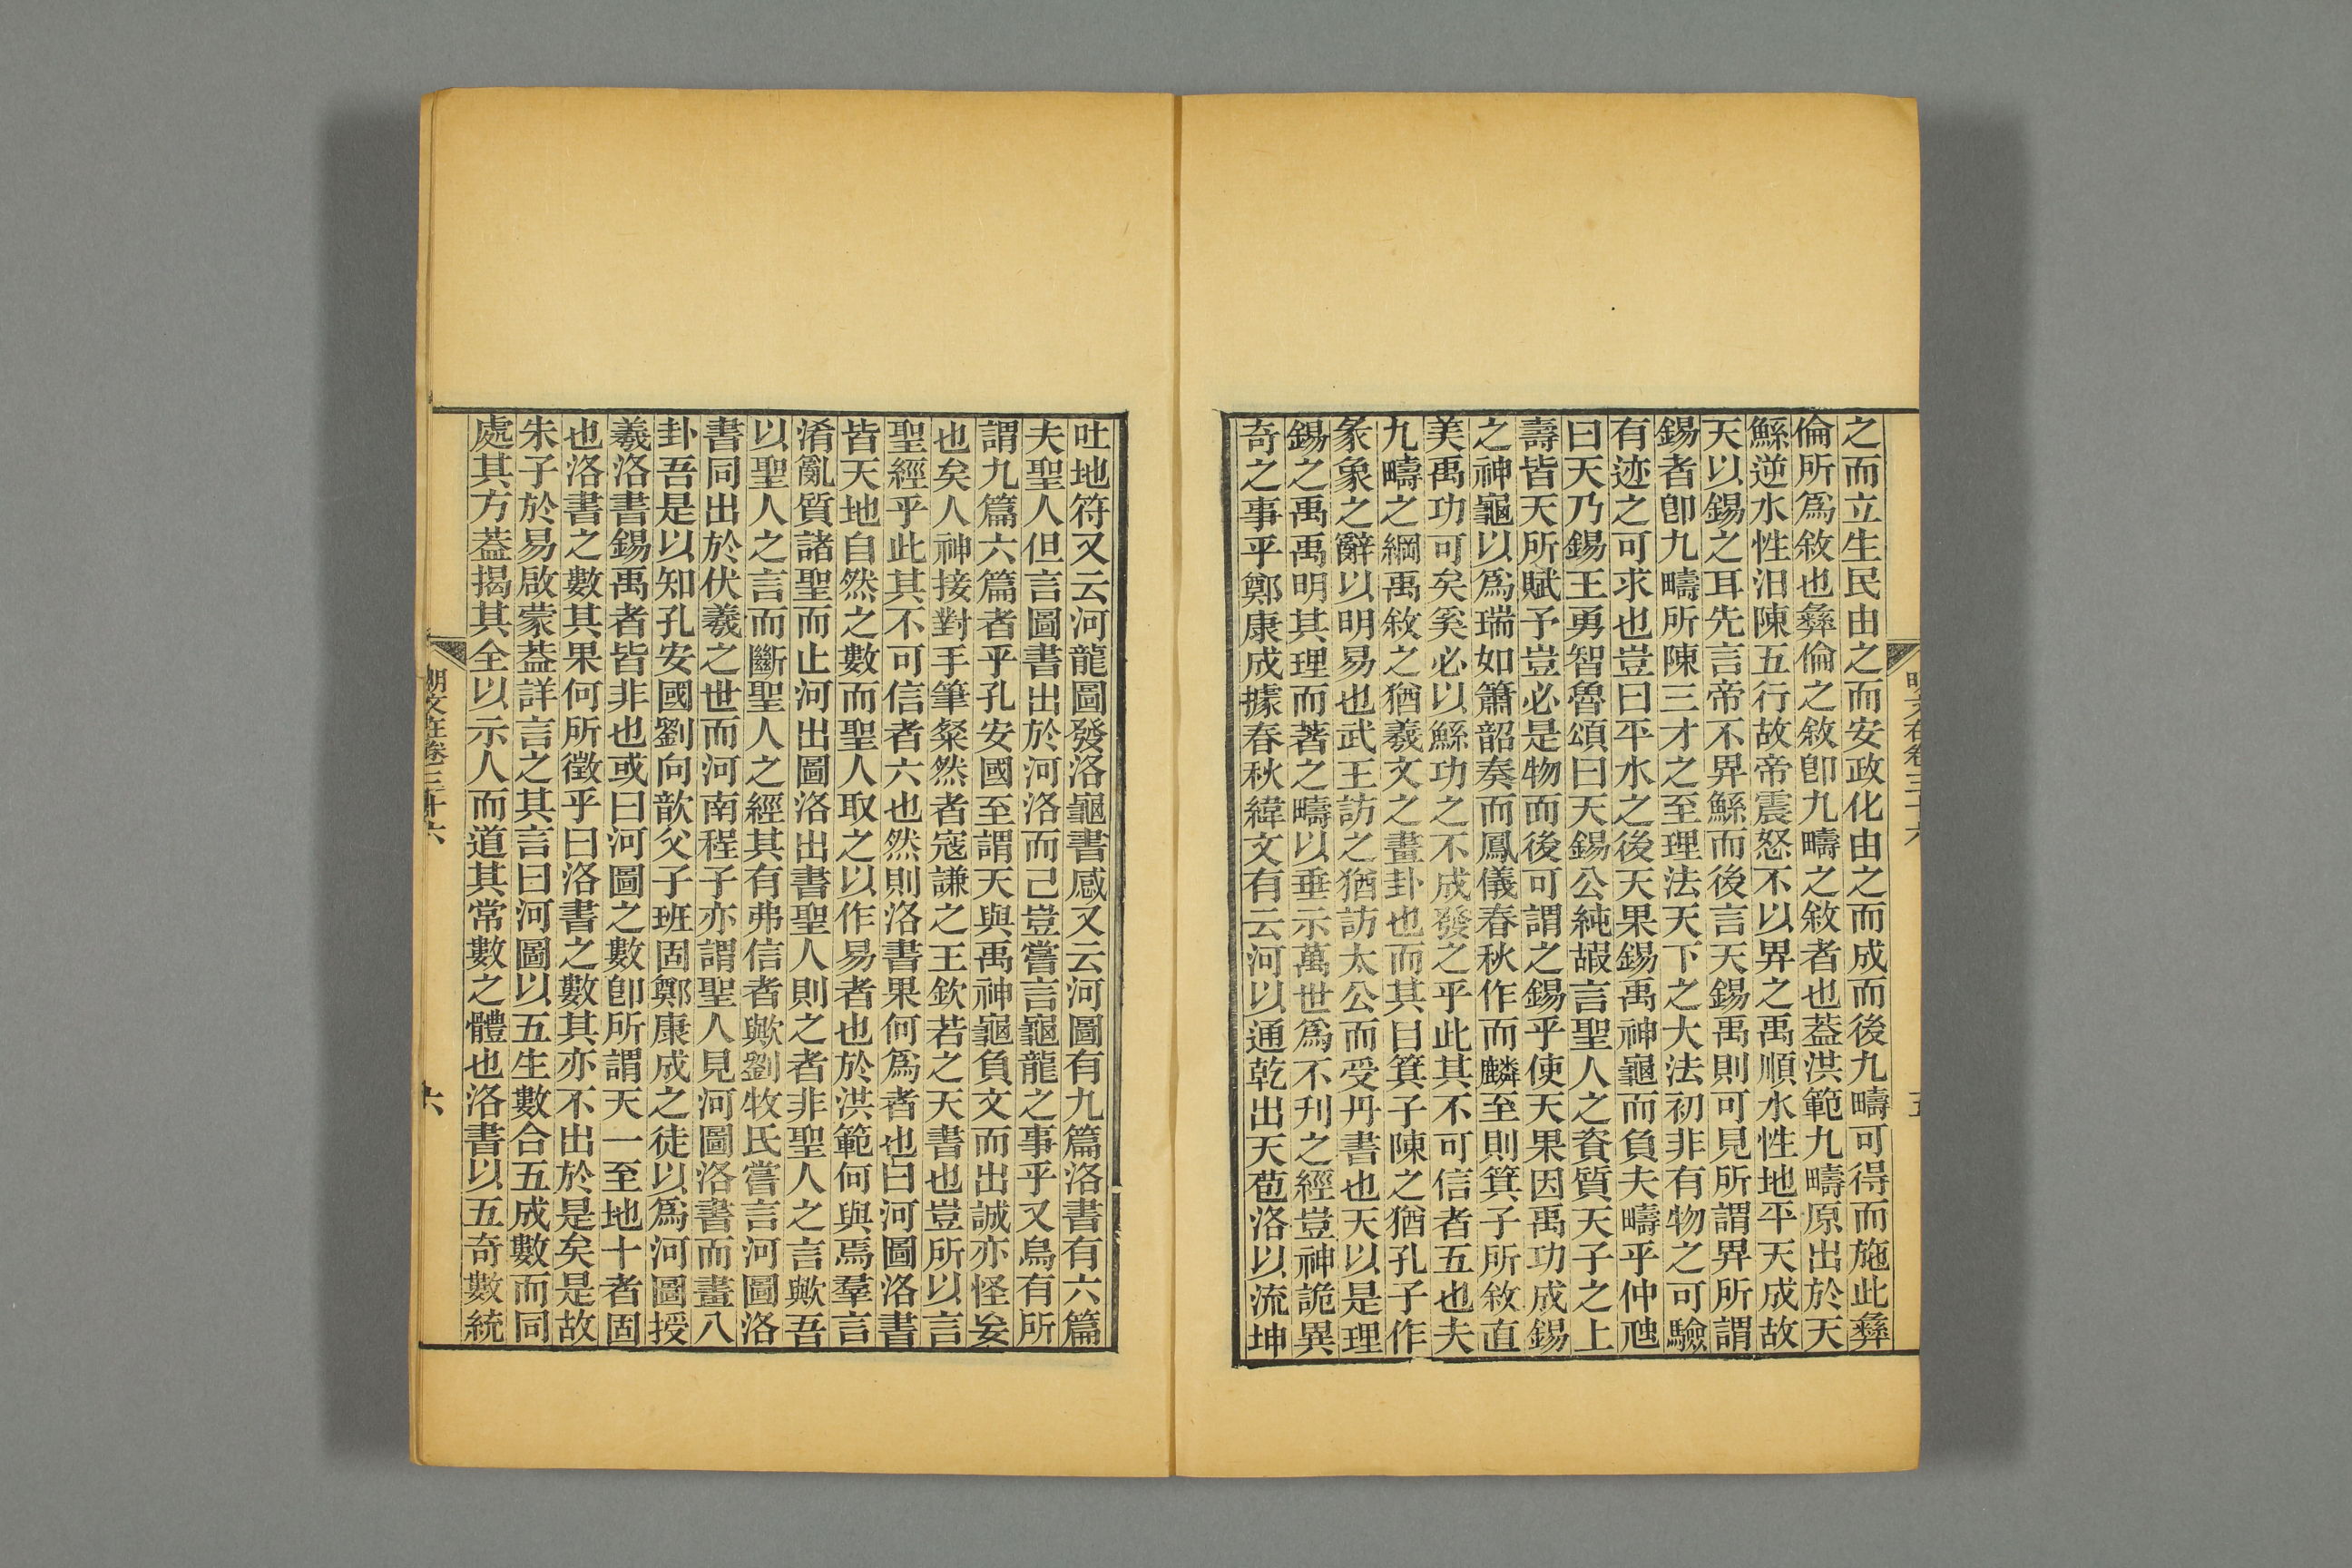 之而立生民由之而安政化由之而成而後九疇可得而施此彝
倫所爲敘也彝倫之敘卽九疇之敘者也葢洪範九疇原出於天
鯀逆水性汩陳五行故帝震怒不以畀之禹順水性地平天成故
天以錫之耳先言帝不畀鯀而後言天錫禹則可見所謂畀所謂
錫者卽九疇所陳三才之至理法天下之大法初非有物之可驗
有迹之可求也豈曰平水之後天果錫禹神龜而負夫疇乎仲虺
曰天乃錫王勇智魯頌曰天錫公純嘏言聖人之資質天子之上
壽皆天所賦予豈必是物而後可謂之錫乎使天果因禹功成錫
之神龜以爲瑞如簫韶奏而鳳儀春秋作而麟至則箕子所敘直
美禹功可矣奚必以鯀功之不成發之乎此其不可信者五也夫
九疇之綱禹敘之猶羲文之畫卦也而其目箕子陳之猶孔子作
彖象之辭以明易也武王訪之猶訪太公而受丹書也天以是理
錫之禹禹明其理而著之疇以垂示萬世爲不刋之經豈神詭異
奇之事乎鄭康成據春秋緯文有云河以通乾出天苞洛以流坤
明文在卷三十六
五
吐地符又云河龍圖發洛龜書感又云河圖有九篇洛書有六篇
夫聖人但言圖書出於河洛而已豈嘗言龜龍之事乎又烏有所
謂九篇六篇者乎孔安國至謂天與禹神龜負文而出誠亦怪妄
也矣人神接對手筆粲然者寇謙之王欽若之天書也豈所以言
聖經乎此其不可信者六也然則洛書果何爲者也曰河圖洛書
皆天地自然之數而聖人取之以作易者也於洪範何與焉羣言
淆亂質諸聖而止河出圖洛出書聖人則之者非聖人之言歟吾
以聖人之言而斷聖人之經其有弗信者歟劉牧氏嘗言河圖洛
書同出於伏羲之世而河南程子亦謂聖人見河圖洛書而畫八
卦吾是以知孔安國劉向歆父子班固鄭康成之徒以爲河圖授
羲洛書錫禹者皆非也或曰河圖之數卽所謂天一至地十者固
也洛書之數其果何所徵乎曰洛書之數其亦不出於是矣是故
朱子於易啟蒙葢詳言之其言曰河圖以五生數合五成數而同
處其方葢揭其全以示人而道其常數之體也洛書以五奇數統
明文在卷三十六
六